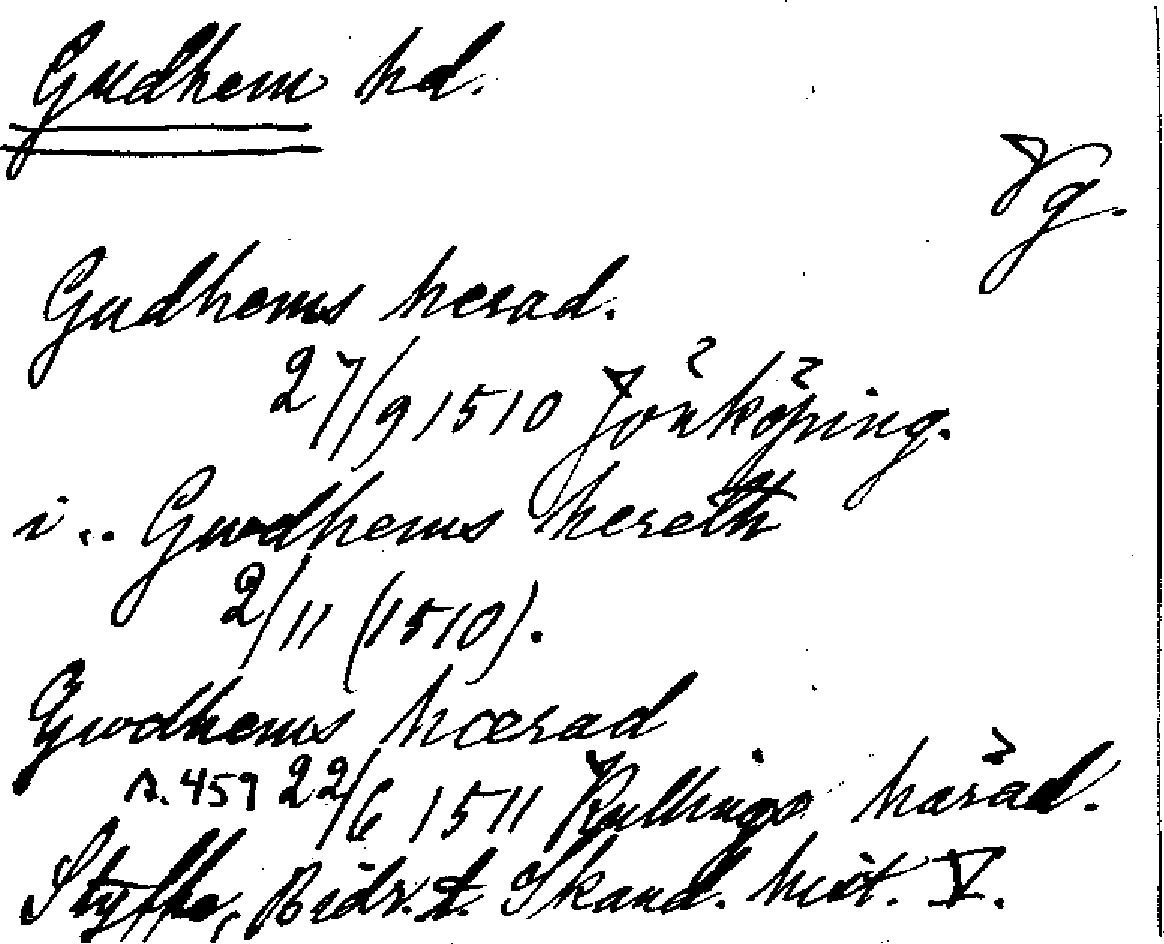 Gudhem hd.
Vg.
Gudhems herad.
27/9 1510 Jönköping.
i .. Gwdhems hereth
2/11 (1510).
Gwdhems hærad
s. 459 22/6 1511 Kullings härad.
Styffe, Bidr. t. Skand. hist. V.